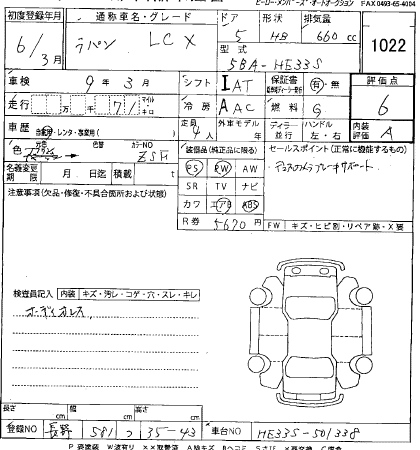 ヒーロー・メンバーズ・オートオークション FAX 0493-65-4004
初度登録年月 通称車名・グレード ドア 形状 排気量
6/3月 ラパン LCX 5 HB 660cc
型式 1022
5BA-HE33S
車検 9年3月 シフト IAT 保証書 有・無 評価点
走行 万 千 71 マイル キロ 冷房 AAC 燃料 G 6
車歴 自家用・レンタ・事業用( ) 定員 4人 外車モデル年 ディーラー 並行 ハンドル 左・右 内装評価 A
色 元色 色替 カラーNO ZSH 装備品(純正品に限る) セールスポイント(正常に機能するもの)
名義変更期限 月 日迄 積載 t PS PW AW
注意事項(欠品・修復・不具合箇所および状態) SR TV ナビ
カワ エアB ABS
R券 5670円 FW キズ・ヒビ割・リペア跡・X要
検査員記入 内装 キズ・汚レ・コゲ・穴・スレ・キレ
オーディオレス
長さ cm 幅 cm 高さ cm
登録NO 長野 581 つ 35-43 車台NO HE33S-501338